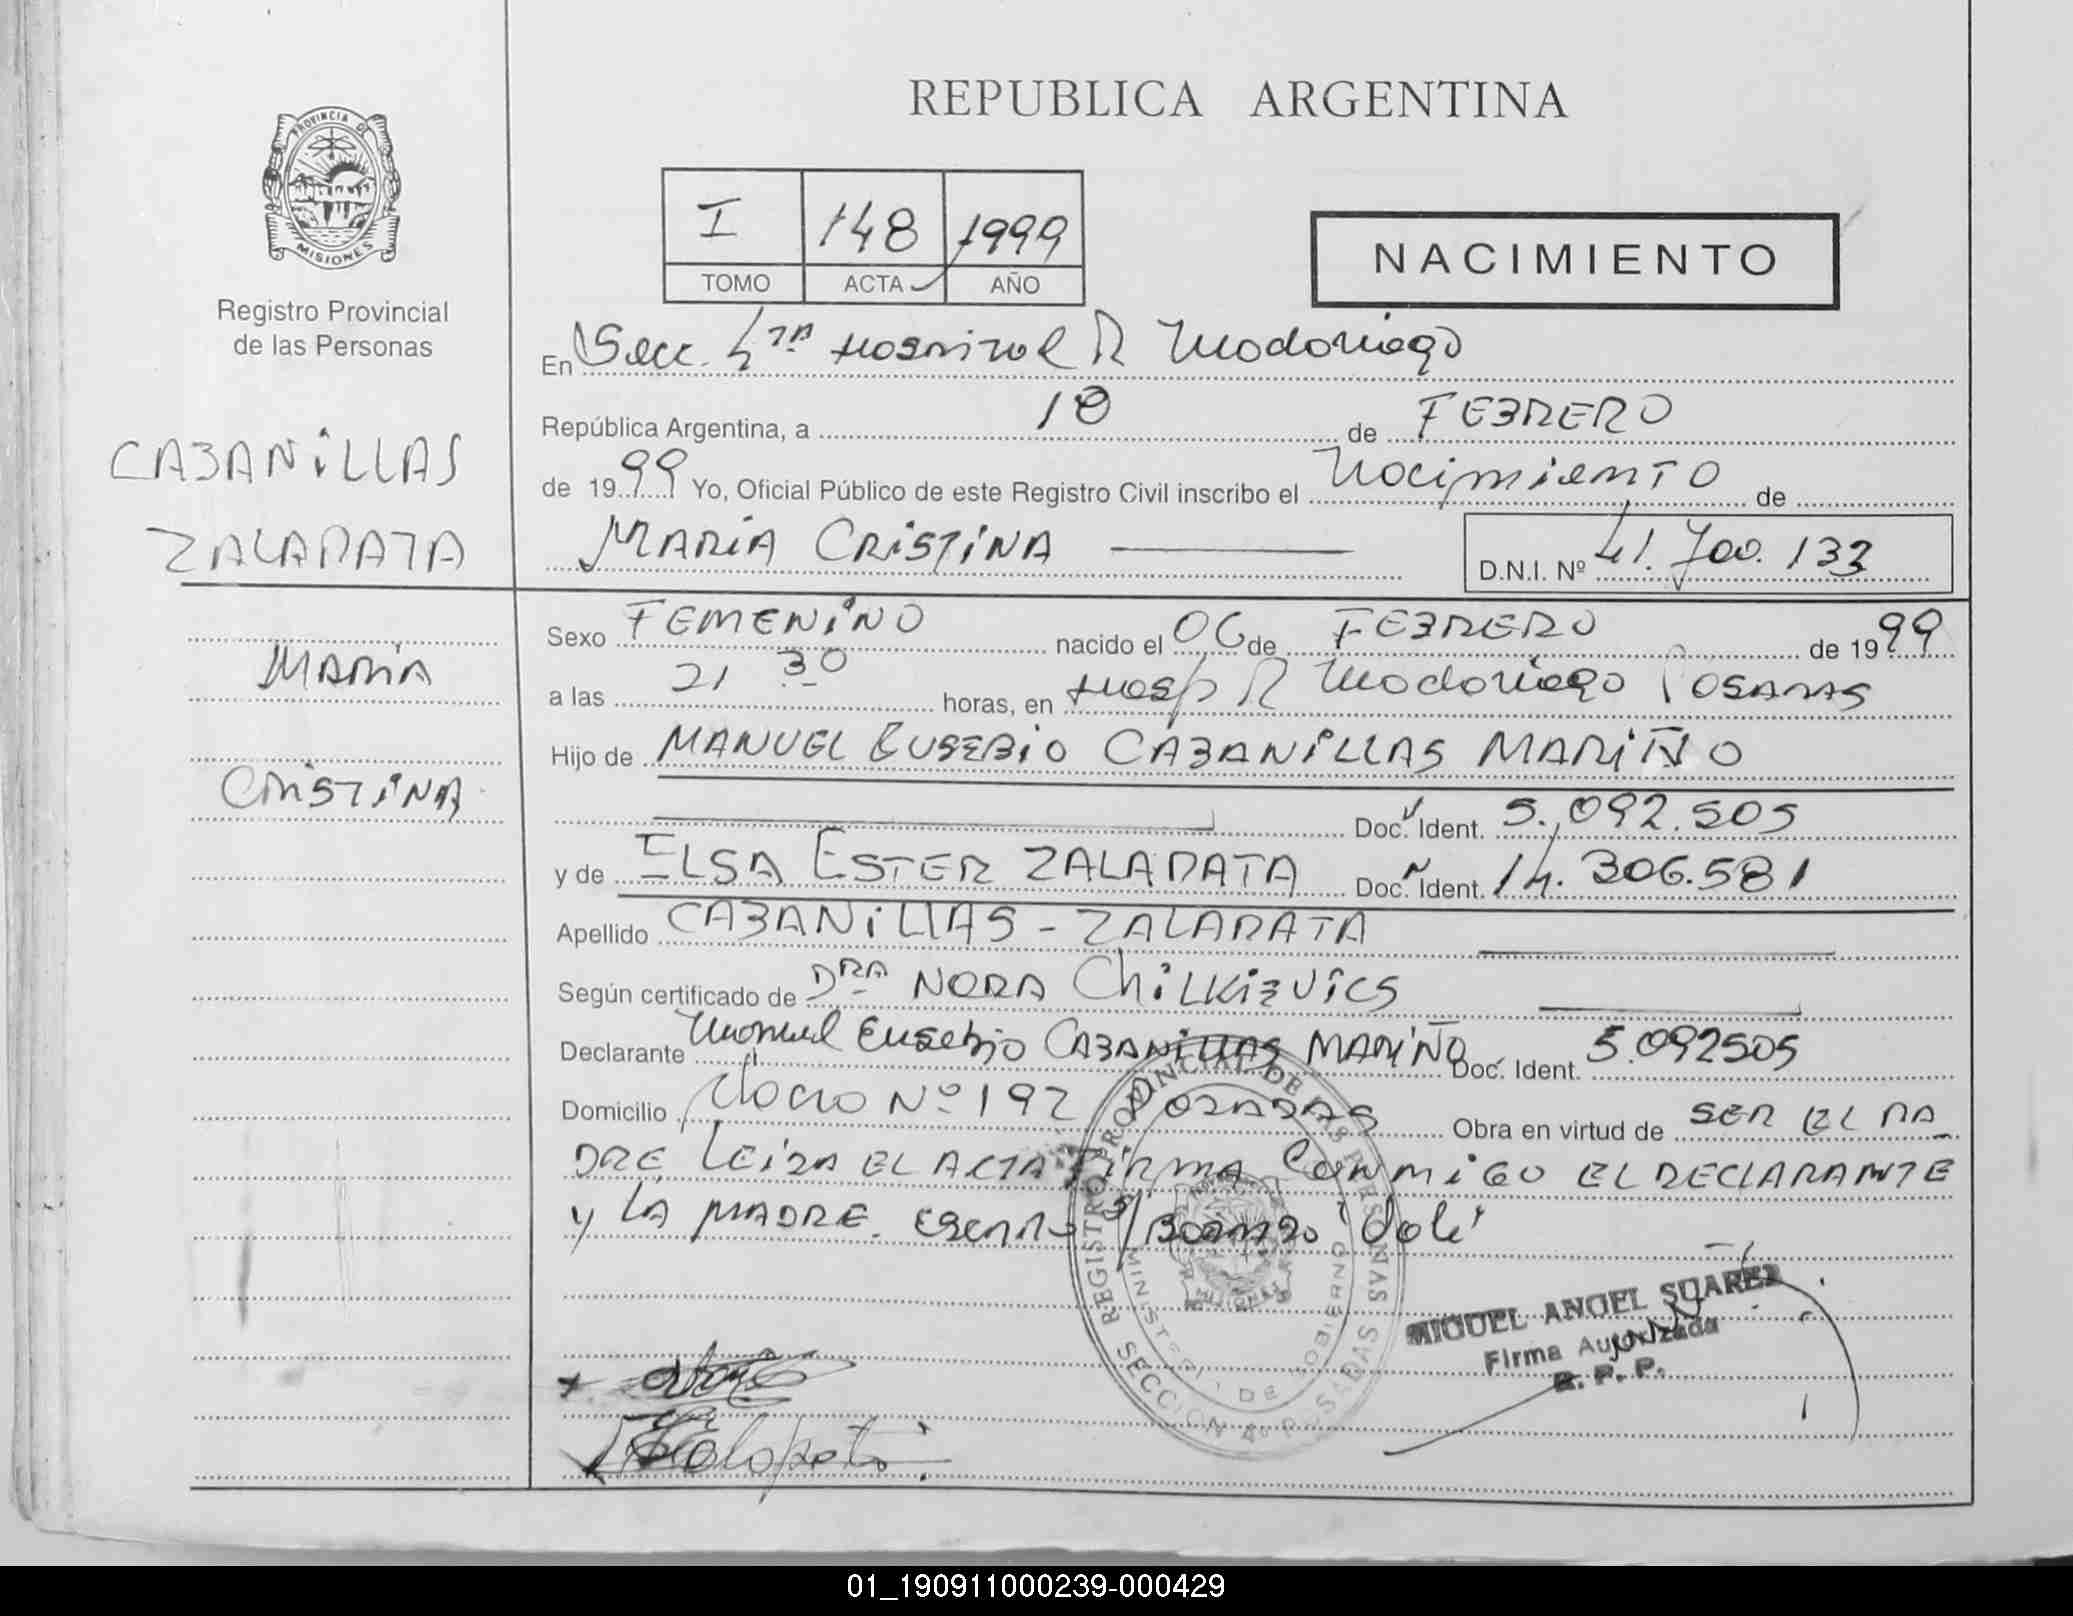 REPUBLICA ARGENTINA
PROVINCIA DE
MISIONES
Registro Provincial
de las Personas
I 148 1999
TOMO ACTA AÑO
NACIMIENTO
En Secc. 4ta Hospital R Madariaga
República Argentina, a 18 de FEBRERO
de 1999 Yo, Oficial Público de este Registro Civil inscribo el Nacimiento de
MARIA CRISTINA
D.N.I. Nº 41.700.133
CABANILLAS
ZALAPATA
MARIA
CRISTINA
Sexo FEMENINO nacido el 06 de FEBRERO de 1999
a las 21 30 horas, en Hosp R Madariaga Posadas
Hijo de MANUEL EUSEBIO CABANILLAS MARIÑO
Doc. Ident. 5.092.505
y de ILSA ESTER ZALAPATA Doc. Ident. 14.306.581
Apellido CABANILLAS - ZALAPATA
Según certificado de DRA NORA ChiLKiEViCS
Declarante Manuel Eusebio CABANILLAS MARIÑO Doc. Ident. 5.092505
Domicilio Nº 192 POSADAS Obra en virtud de SER EL PA
DRE LEIDA EL ACTA FIRMA CONMIGO EL DECLARANTE
y LA MADRE. S/ BORRADO Vale
REGISTRO PROVINCIAL DE LAS PERSONAS
MINISTERIO DE GOBIERNO
SECCION 4º POSADAS
MIGUEL ANGEL SUAREZ
Firma Autorizada
R. P. P.
01_190911000239-000429